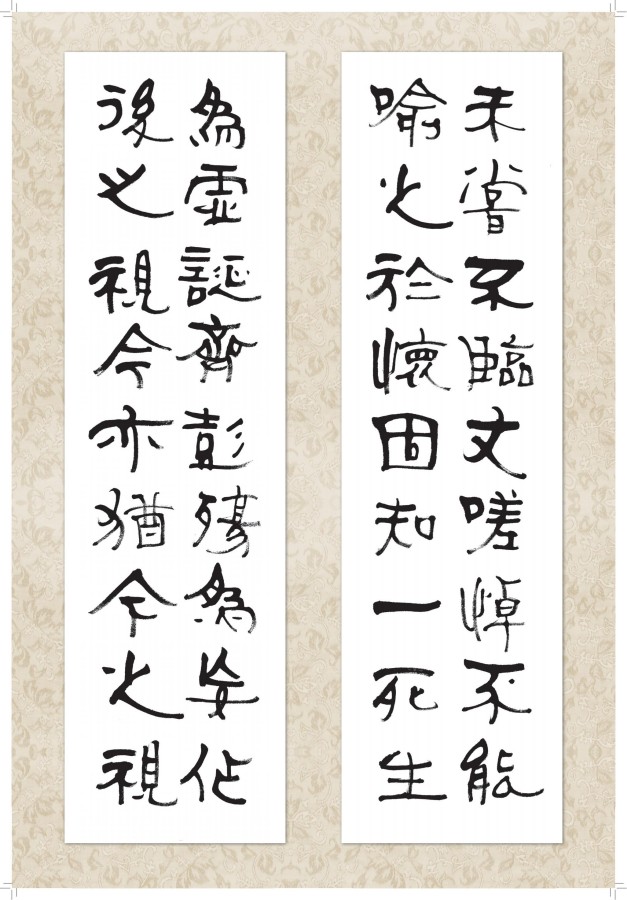 未嘗不臨文嗟悼不能
喻之於懷固知一死生
為虛誕齊彭殤為妄作
後之視今亦猶今之視